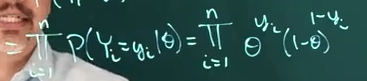 = ∏_{i=1}^{n} P(Y_i = y_i | θ) = ∏_{i=1}^{n} θ^{y_i} (1-θ)^{1-y_i}